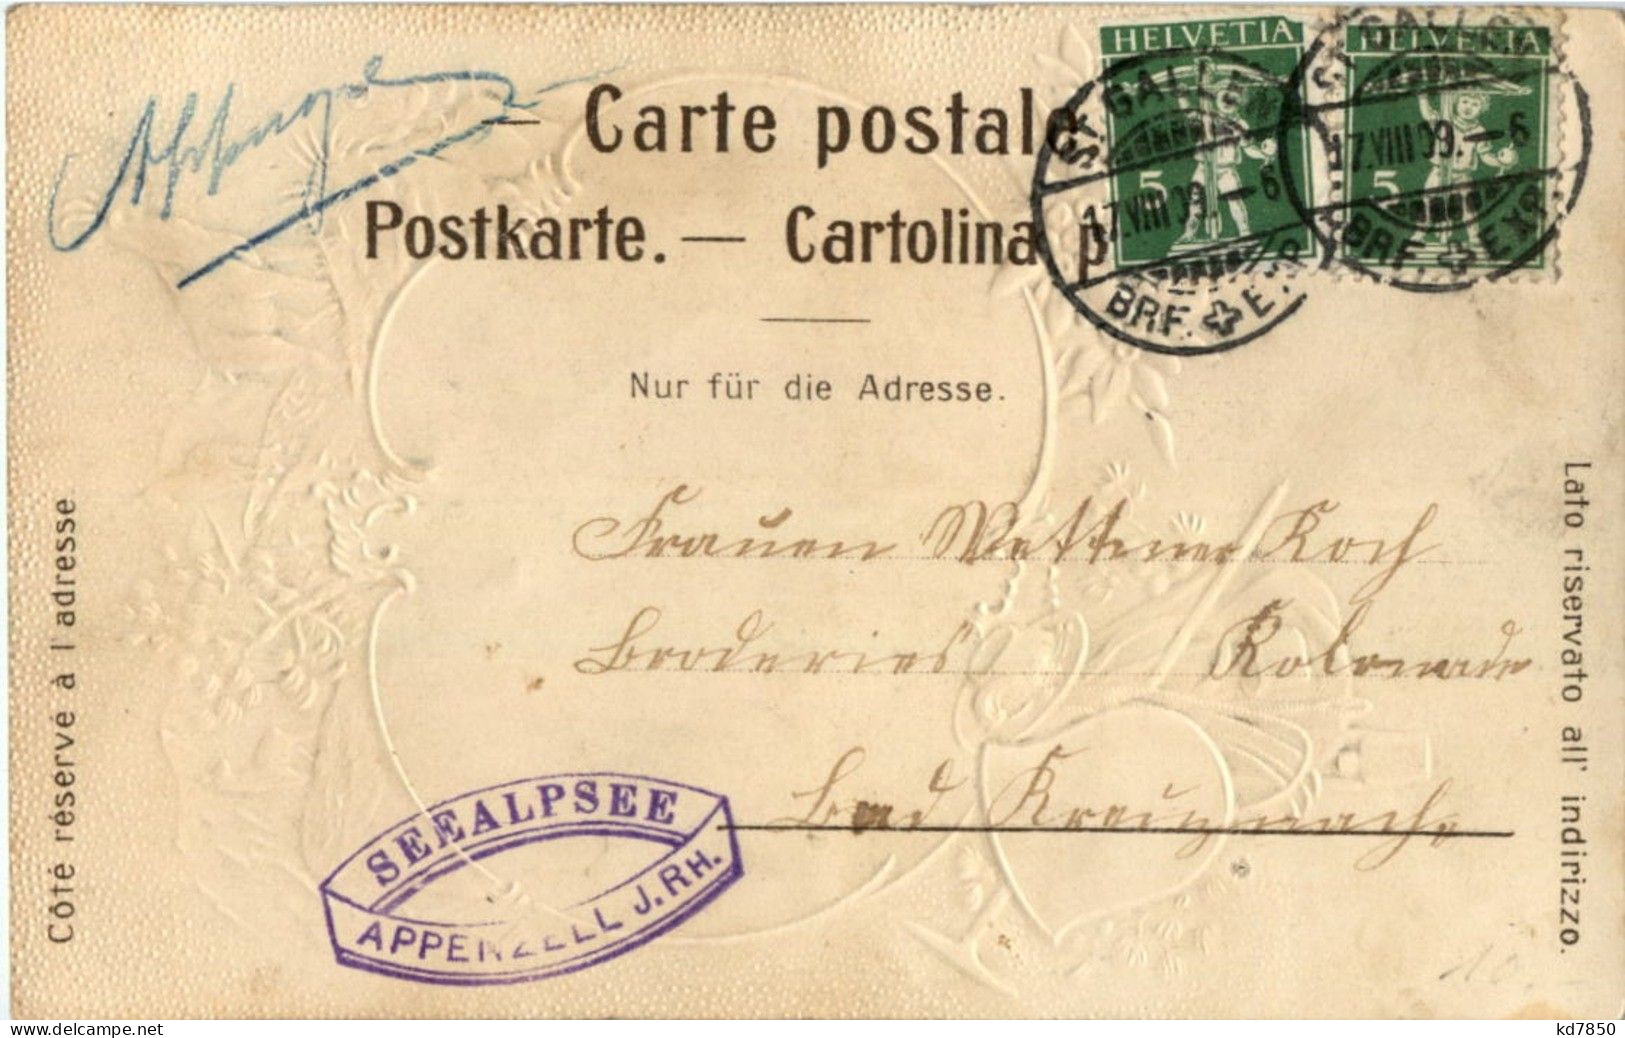 HELVETIA HELVETIA
— Carte postale
5 5
ST. GALLEN 17.VIII 09. — 6 BRF. EXP.
ST. GALLEN 17.VIII 09. — 6 BRF. EXP.
Postkarte. — Cartolina p
Nur für die Adresse.
Côté réservé à l'adresse
Lato riservato all' indirizzo.
Frauen Koch
Broderies Kolonnade
Bad Kreuznach
SEEALPSEE
APPENZELL J. RH.
10
kd7850
www.delcampe.net